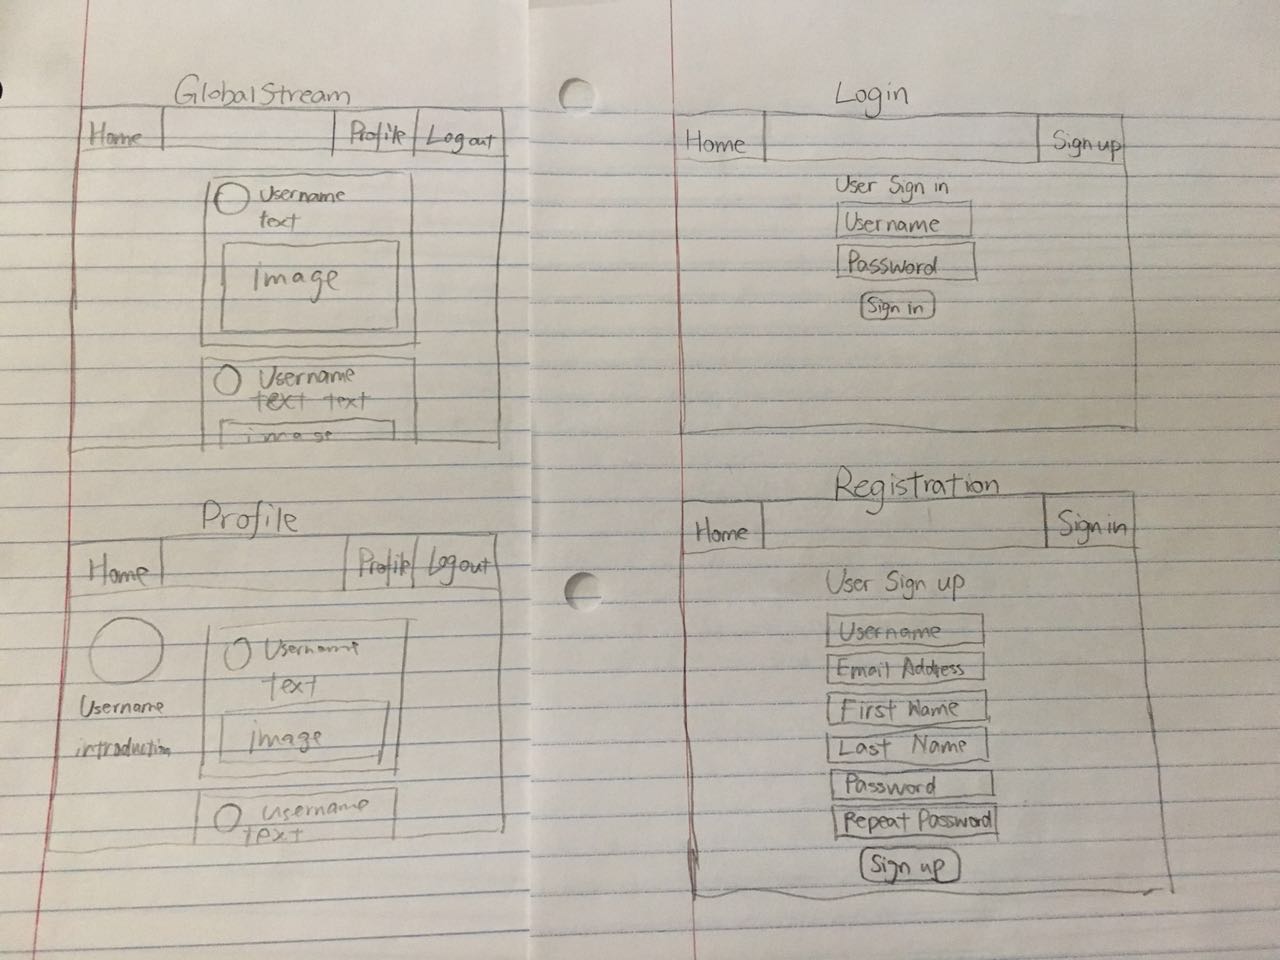 Global Stream
Home Profile Logout
Username
text
image
Username
text text
image
Profile
Home Profile Logout
Username
introduction
Username
text
image
Username
text
Login
Home Sign up
User Sign in
Username
Password
Sign in
Registration
Home Sign in
User Sign up
Username
Email Address
First Name
Last Name
Password
Repeat Password
Sign up